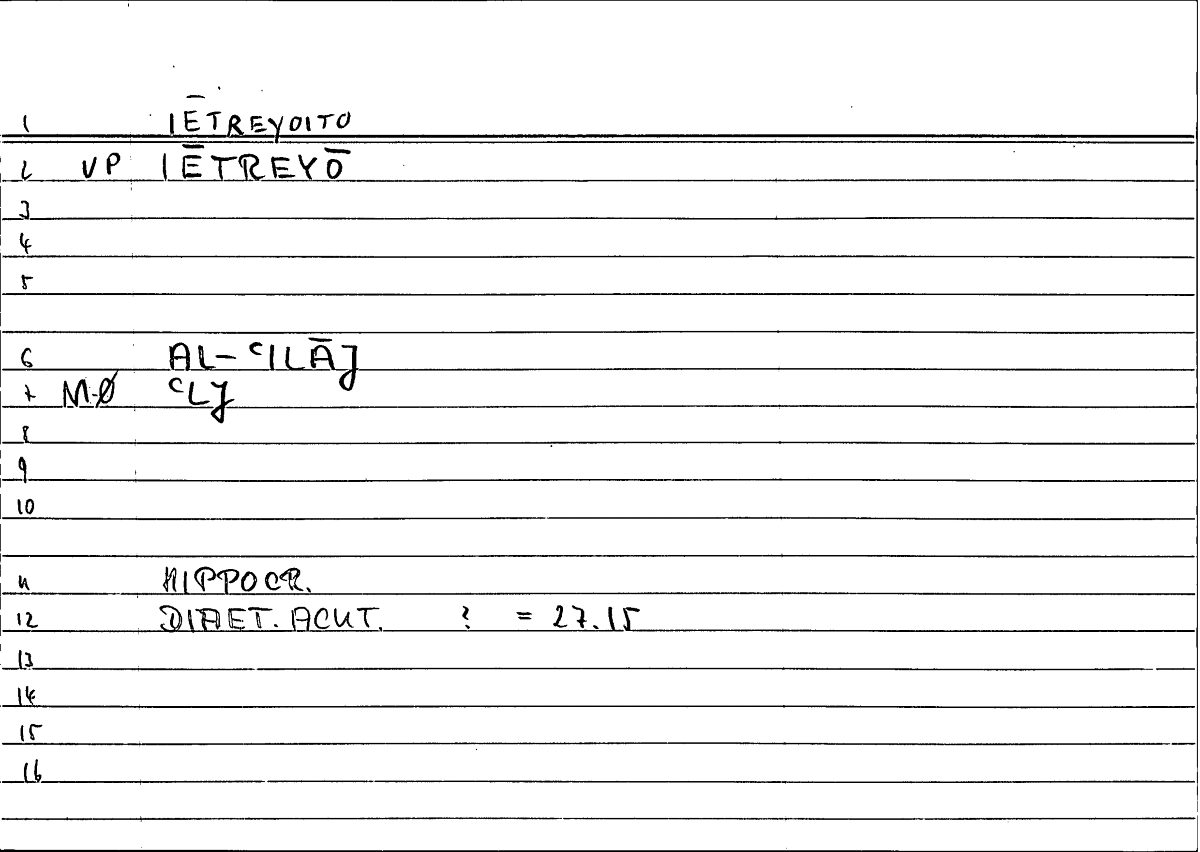 1 IĒTREYOITO
2 VP IĒTREYŌ
3
4
5
6 AL-ʿILĀJ
7 MØ ʿLJ
8
9
10
11 HIPPOCR.
12 DIAET. ACUT. ? = 27.15
13
14
15
16